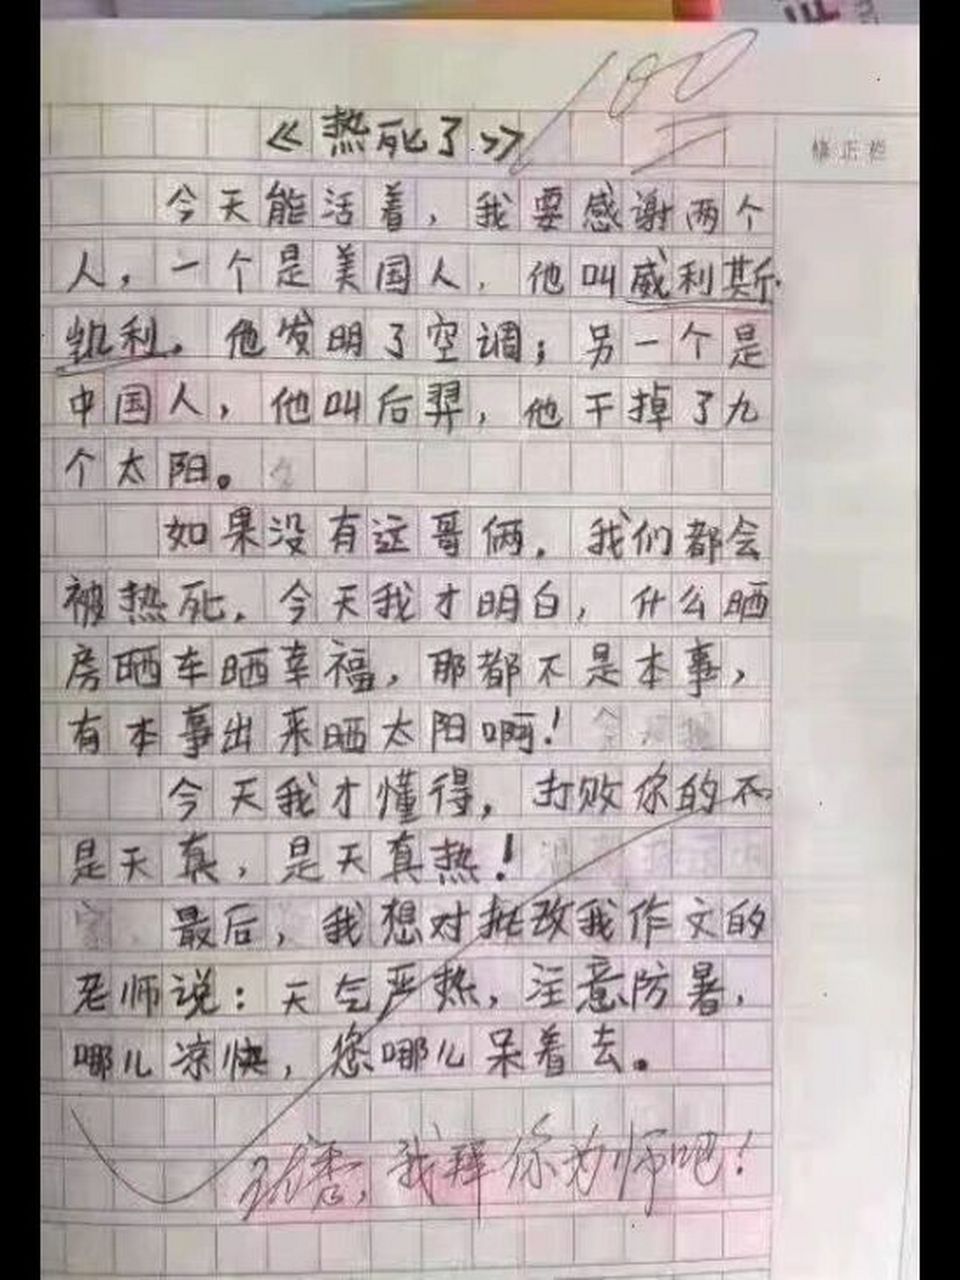 100
《热死了》
修正栏
今天能活着，我要感谢两个
人，一个是美国人，他叫威利斯·
凯利。他发明了空调；另一个是
中国人，他叫后羿，他干掉了九
个太阳。
如果没有这哥俩，我们都会
被热死。今天我才明白，什么晒
房晒车晒幸福，那都不是本事，
有本事出来晒太阳啊！
今天我才懂得，打败你的不
是天真，是天真热！
最后，我想对批改我作文的
老师说：天气严热，注意防暑，
哪儿凉快，您哪儿呆着去。
优秀，我拜你为师吧！